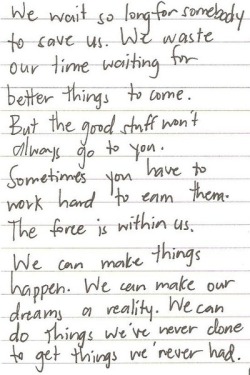 We wait so long for somebody
to save us. We waste
our time waiting for
better things to come.
But the good stuff won't
always go to you.
Sometimes you have to
work hard to earn them.
The force is within us.
We can make things
happen. We can make our
dreams a reality. We can
do things we've never done
to get things we'never had.